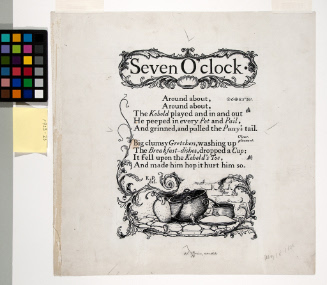 Seven O'clock.
Around about,
Around about,
The Kobold played and in and out
He peeped in every Pot and Pail,
And grinned, and pulled the Pussy's tail.
Big clumsy Gretchen, washing up
The Breakfast-dishes, dropped a Cup;
It fell upon the Kobold's Toe,
And made him hop it hurt him so.